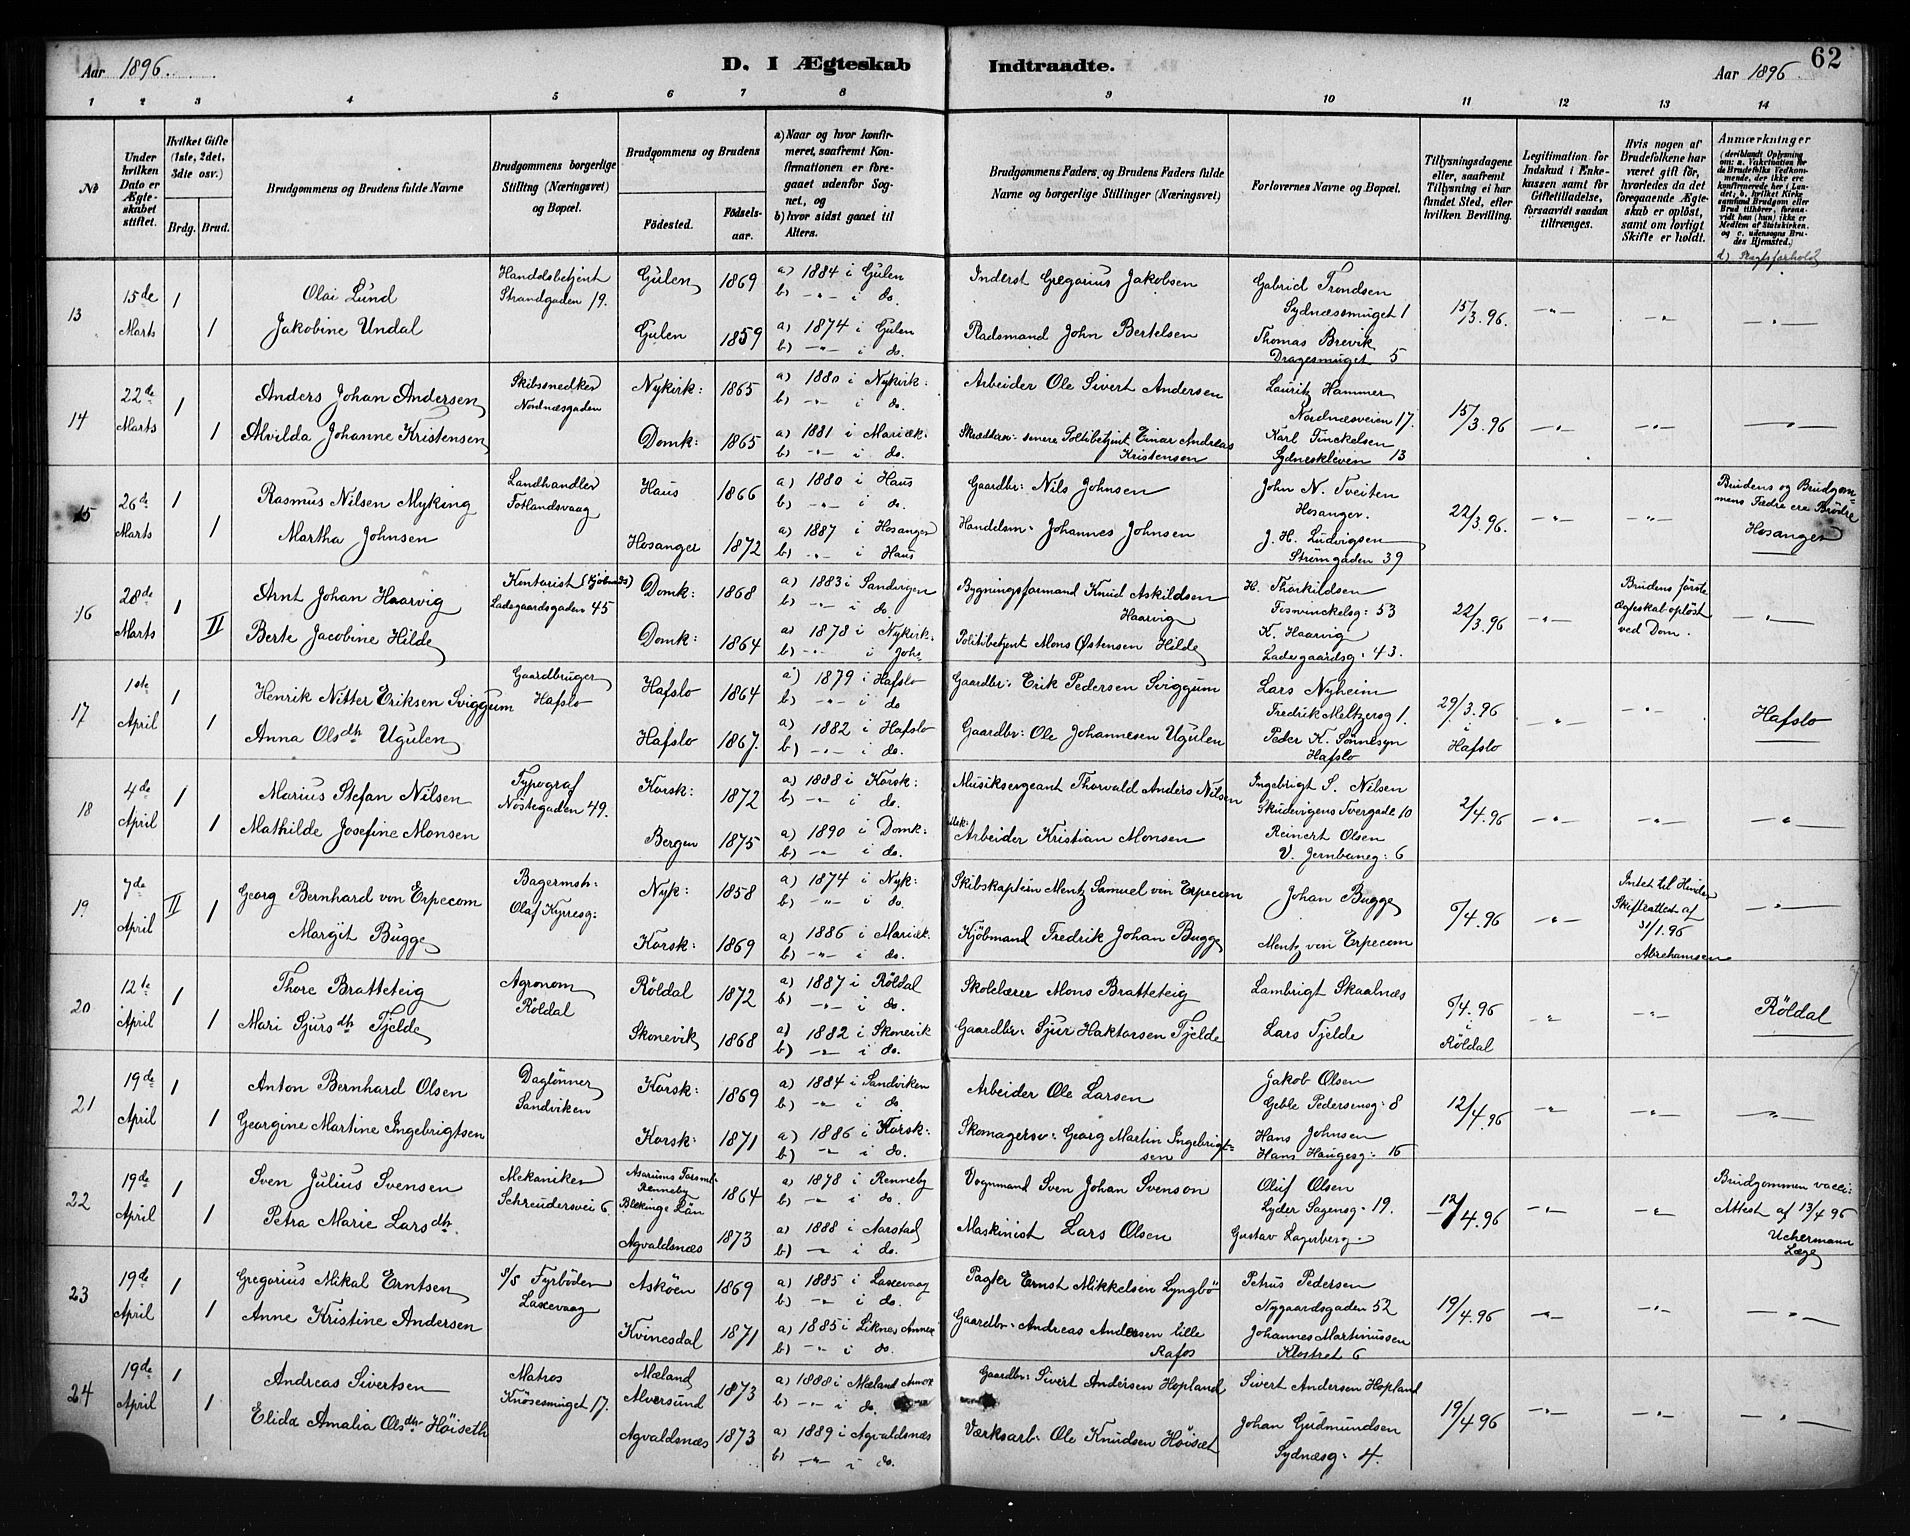 Aar 1896.
D. I Ægteskab Indtraadte.
Aar 1896
62
1 2 3 4 5 6 7 8 9 10 11 12 13 14
No
Under hvilken Dato er Ægteskabet stiftet.
Hvilket Gifte (1ste, 2det, 3die osv.)
Brdg. Brud.
Brudgommens og Brudens fulde Navne
Brudgommens borgerlige Stilling (Næringsvei) og Bopæl.
Brudgommens og Brudens
Födested.
Födselsaar.
a) Naar og hvor konfirmeret, saafremt Konfirmationen er foregaaet udenfor Sognet, og
b) hvor sidst gaaet til Alters.
Brudgommens Faders, og Brudens Faders fulde Navne og borgerlige Stillinger (Næringsvei)
Forlovernes Navne og Bopæl.
Tillysningsdagene eller, saafremt Tillysning ei har fundet Sted, efter hvilken Bevilling.
Legitimation for Indskud i Enkekassen samt for Giftetilladelse, forsaavidt saadan tiltrænges.
Hvis nogen af Brudefolkene har været gift för, hvorledes da det foregaaende Ægteskab er oplöst, samt om lovligt Skifte er holdt.
Anmærkninger
(deriblandt Oplysning om: a. Vakcination for de Brudefolks Vedkommende, der ikke ere konfirmerede her i Landet; b. hvilket Kirkesamfund Brudgom eller Brud tilhörer, forsaavidt han (hun) ikke er Medlem af Statskirken, og c. udensogns Brudes Hjemsted.)
13
15de Marts
1
Olai Lund
Handelsbetjent
Strandgaden 19.
Gulen
1869
a) 1884 i Gulen
b) -"- i do.
Inderst Gregorius Jakobsen
Gabriel Trondsen
Sydnæssmuget 1
15/3.96.
1
Jakobine Undal
Gulen
1859
a) 1874 i Gulen
b) -"- i do.
Pladsmand John Bertelsen
Thomas Brevik
Dragesmuget 5
14
22de Marts
1
Anders Johan Andersen
Skibssnedker
Nordnæsgaden
Nykirk:
1865
a) 1880 i Nykirk:
b) -"- i do.
Arbeider Ole Sivert Andersen
Lauritz Hammer
Nordnæsveien 17.
15/3.96
1
Alvilda Johanne Kristensen
Domk:
1865
a) 1881 i Mariæk.
b) -"- i do.
Skrædder: senere Politibetjent Einar Andreas Kristensen
Karl Finckelsen
Sydneskleven 13
15
26de Marts
1
Rasmus Nilsen Myking
Landhandler
Fotlandsvaag
Haus
1866
a) 1880 i Haus
b) -"- i do.
Gaardbr: Nils Johnsen
John N. Tveiten
Hosanger.
22/3.96.
Brudens og Brudgommens Fædre ere Brödre
Hosanger
1
Martha Johnsen
Hosanger
1872
a) 1887 i Hosanger
b) -"- i Haus
Handelsm: Johannes Johnsen
J. H. Ludvigsen
Strömgaden 39
16
28de Marts
1
Arnt Johan Haarvig
Kontorist
Ladegaardsgaden 45
Domk:
1868
a) 1883 i Sandvigen
b) -"- i do.
Bygningsformand Knud Askildsen Haarvig
H. Thorkildsen
Foswinckelsg: 53
22/3.96
Brudens förste Ægteskab oplöst ved Dom.
II
Berte Jacobine Hilde
Domk:
1864
a) 1878 i Nykirk.
b) -"- i Joh:
Politibetjent Mons Østensen Hilde
K. Haarvig
Ladegaardsg: 43.
17
1ste April
1
Henrik Nitter Eriksen Sviggum
Gaardbruger
Hafslo
Hafslo
1864
a) 1879 i Hafslo
b) -"- i do
Gaardbr: Erik Pedersen Sviggum
Lars Nyheim
Fredrik Meltzersg 1.
29/3.96
i Hafslo
Hafslo
1
Anna Olsdtr Ugulen
Hafslo
1867.
a) 1882 i Hafslo
b) -"- i do.
Gaardbr: Ole Johannesen Ugulen
Peder K. Sønnesyn
Hafslo
18
4de April
1
Marius Stefan Nilsen
Typograf
Nöstegaden 49.
Korsk:
1872
a) 1888 i Korsk:
b) -"- i do.
Musiksergeant Thorvald Anders Nilsen
Ingebrigt S. Nilsen
Skudevigens Tvergade 10
2/4.96
1
Mathilde Josefine Monsen
Bergen
1875
a) 1890 i Domk:
b) -"- i do.
Arbeider Kristian Monsen
Reinert Olsen
V. Jernbaneg: 6
19
7de April
II
Georg Bernhard von Erpecom
Bagermstr:
Olaf Kyrresg:
Nyk:
1858
a) 1874 i Nyk:
b) -"- i do.
Skibskaptein Mentz Samuel von Erpecom
Johan Bugge
6/4.96
Intet til Hinder
Skifteattest af
31/1.96
Abrehamsen
1
Margit Bugge
Korsk:
1869
a) 1886 i Mariæk.
b) -"- i do.
Kjöbmand Fredrik Johan Bugge
Mentz von Erpecom
20
12te April
1
Thore Bratteteig
Agronom
Röldal
Röldal
1872
a) 1887 i Röldal
b) -"- i do.
Skolelærer Mons Bratteteig
Lambrigt Skaalnæs
6/4.96
i Röldal
Röldal
1
Mari Sjursdtr Fjelde
Skonevik
1868
a) 1882 i Skonevik
b) -"- i do.
Gaardbr: Sjur Haktorsen Fjelde
Lars Fjelde
21
19de April
1
Anton Bernhard Olsen
Daglönner
Sandviken
Korsk:
1869
a) 1884 i Sandviken
b) -"- i do
Arbeider Ole Larsen
Jakob Olsen
Geble Pedersensg: 8
12/4.96
1
Georgine Martine Ingebrigtsen
Korsk:
1871
a) 1886 i Korsk:
b) -"- i do.
Skomagersv: Georg Martin Ingebrigtsen
Hans Johnsen
Hans Haugesg: 16
22
19de April
1
Sven Julius Svensen
Mekaniker
Schreudersvei 6.
Asarums Forsml.
Renneby
Blekinge Län
1864
a) 1878 i Renneby
b) -"- i do.
Vognmand Sven Johan Svenson
Oluf Olsen
Lyder Sagensg: 19.
12/4.96
Brudgommen vacc:
Attest af 13/4 96
Uchermann
Læge
1
Petra Marie Larsdtr.
Agvaldsnæs
1873
a) 1888 i Aarstad
b) -"- i do.
Maskinist Lars Olsen
Gustav Lagerberg.
23
19de April
1
Gregorius Mikal Erntsen
S/S Fyrböder
Laxevaag
Asköen
1869
a) 1885 i Laxevaag
b) -"- i do.
Pagter Ernst Mikkelsen Lyngbö
Petrus Pedersen
Nygaardsgaden 52
19/4.96
1
Anne Kristine Andersen
Kvinesdal
1871
a) 1885 i Liknes Annex
b) -"- i do.
Gaardbr: Andreas Andersen lille Rafos
Johannes Martinussen
Klostret 6
24
19de April
1
Andreas Sivertsen
Matros
Knösesmuget 17.
Mæland
Alversund
1873
a) 1888 i Mæland Annex
b) -"- i do.
Gaardbr: Sivert Andersen Hopland
Sivert Andersen Hopland
19/4 96
1
Elida Amalia Olsdtr Höiseth
Agvaldsnæs
1873
a) 1889 i Agvaldsnæs
b) -"- i do.
Værksarb: Ole Knudsen Höisæt
Johan Gudmundsen
Sydnæsg: 4.